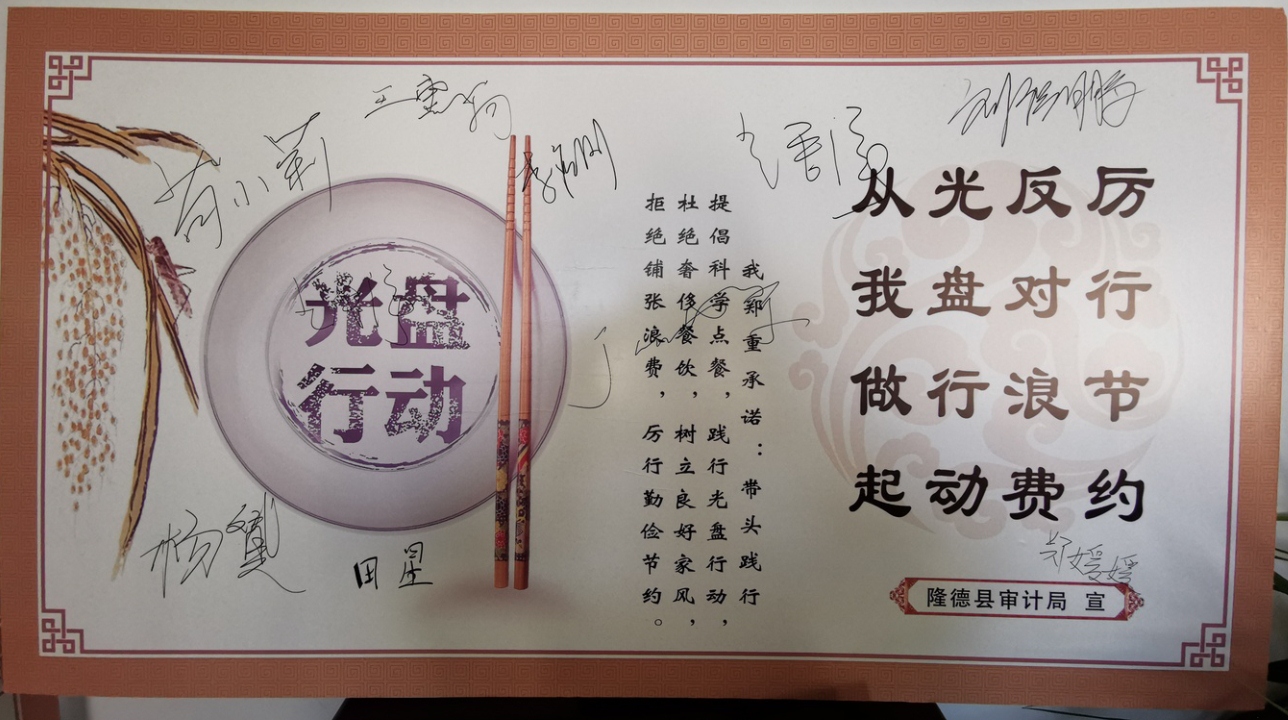 厉行节约
反对浪费
光盘行动
从我做起
我郑重承诺：带头践行
提倡科学点餐，践行光盘行动，
杜绝奢侈餐饮，树立良好家风，
拒绝铺张浪费，厉行勤俭节约。
光盘
行动
田星
郑媛媛
隆德县审计局 宣